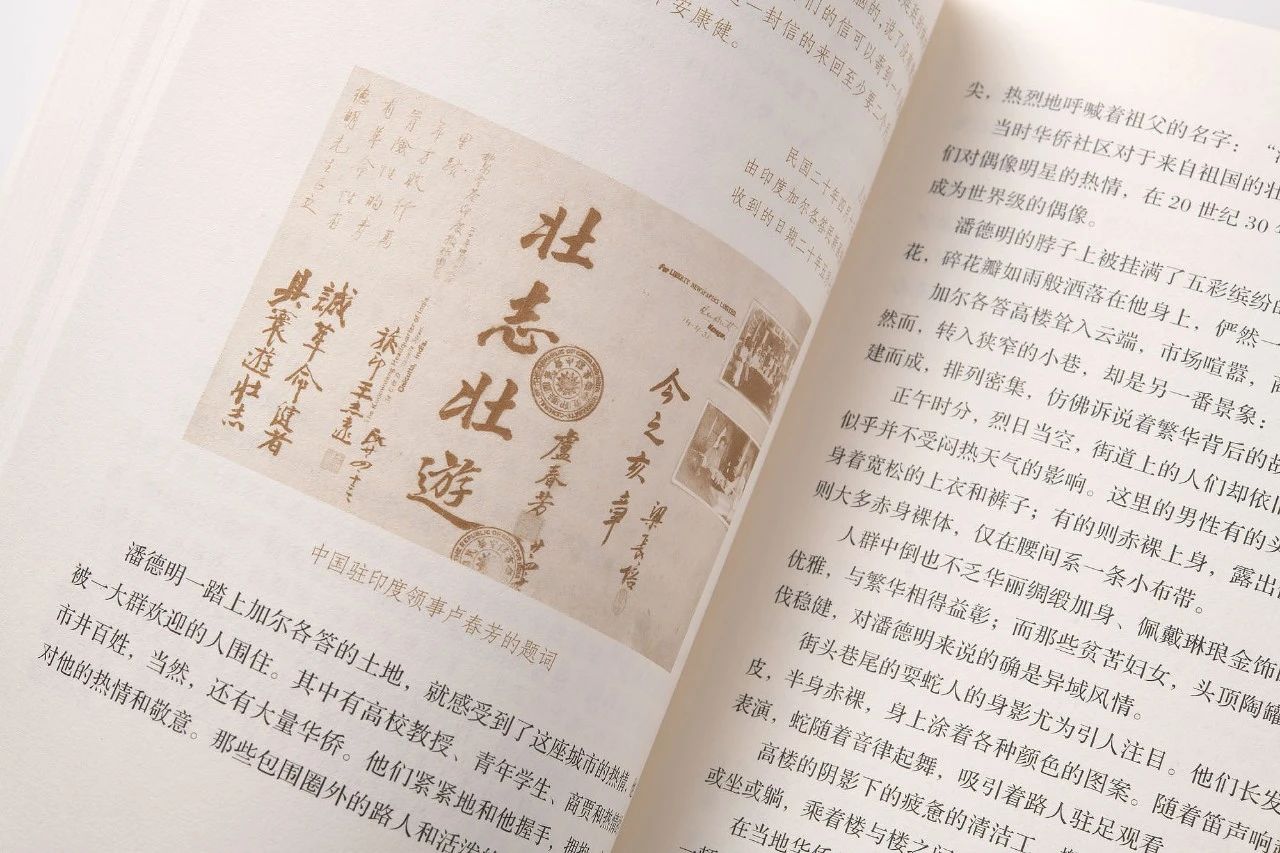 们的信可以寄到一
一封信的来回至少要二个
安康健。
民国二十年四月
由印度加尔各答
收到的日期二十年五
壮
志
壮
遊
盧春芳
今之亥章
梁長培
For LIBERTY NEWSPAPERS LIMITED.
Manager.
誠革命健者
具襄遊壮志
德明先生
有革命的
冒險性行
旅印
中国驻印度领事卢春芳的题词
潘德明一踏上加尔各答的土地，就感受到了这座城市的热情，
被一大群欢迎的人围住。其中有高校教授、青年学生、商贾和热情
市井百姓，当然，还有大量华侨。他们紧紧地和他握手，拥抱
对他的热情和敬意。那些包围圈外的路人和活泼
尖，热烈地呼喊着祖父的名字：“
当时华侨社区对于来自祖国的壮
们对偶像明星的热情，在 20 世纪 30 年
成为世界级的偶像。
潘德明的脖子上被挂满了五彩缤纷的
花，碎花瓣如雨般洒落在他身上，俨然一
加尔各答高楼耸入云端，市场喧嚣，
然而，转入狭窄的小巷，却是另一番景象：
建而成，排列密集，仿佛诉说着繁华背后的故
正午时分，烈日当空，街道上的人们却依旧
似乎并不受闷热天气的影响。这里的男性有的头
身着宽松的上衣和裤子；有的则赤裸上身，露出
则大多赤身裸体，仅在腰间系一条小布带。
人群中倒也不乏华丽绸缎加身、佩戴琳琅金饰的
优雅，与繁华相得益彰；而那些贫苦妇女，头顶陶罐
伐稳健，对潘德明来说的确是异域风情。
街头巷尾的耍蛇人的身影尤为引人注目。他们长发
皮，半身赤裸，身上涂着各种颜色的图案。随着笛声响
表演，蛇随着音律起舞，吸引着路人驻足观看
高楼的阴影下的疲惫的清洁工，
或坐或躺，乘着楼与楼之间
在当地华侨